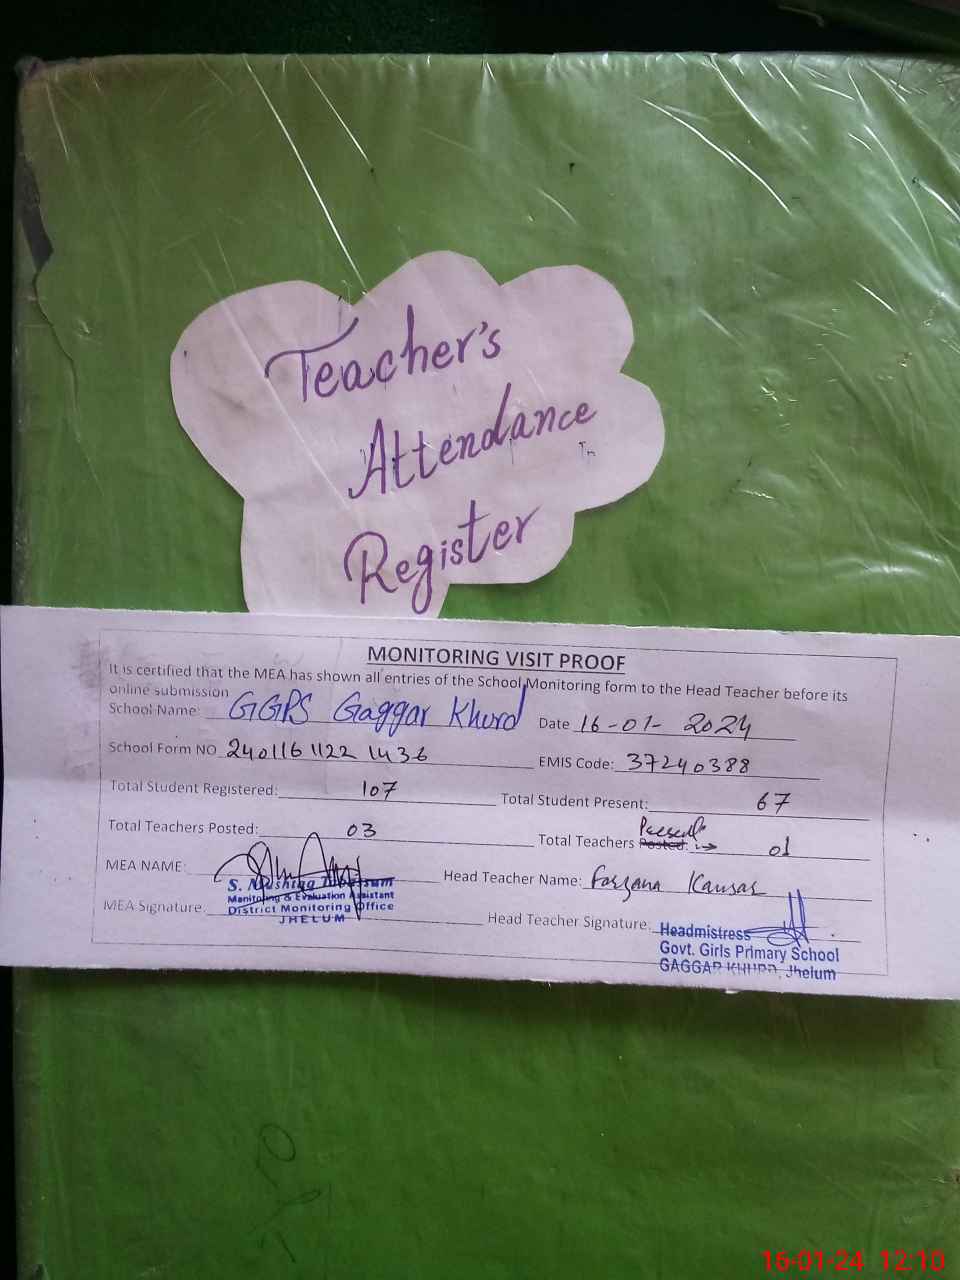 Teacher's
Attendance
Register
MONITORING VISIT PROOF
It is certified that the MEA has shown all entries of the School Monitoring form to the Head Teacher before its
online submission
School Name: GGPS Gaggar Khurd Date 16-01-2024
School Form NO 240116 1122 1436 EMIS Code: 37240388
Total Student Registered: 107 Total Student Present: 67
Total Teachers Posted: 03 Total Teachers Posted: Present 01
MEA NAME: Head Teacher Name: Farzana Kausar
S.
Monitoring & Evaluation Assistant
MEA Signature: District Monitoring Office Head Teacher Signature: Headmistress
JHELUM
Govt. Girls Primary School
GAGGAR KHURD, Jhelum
16-01-24 12:10